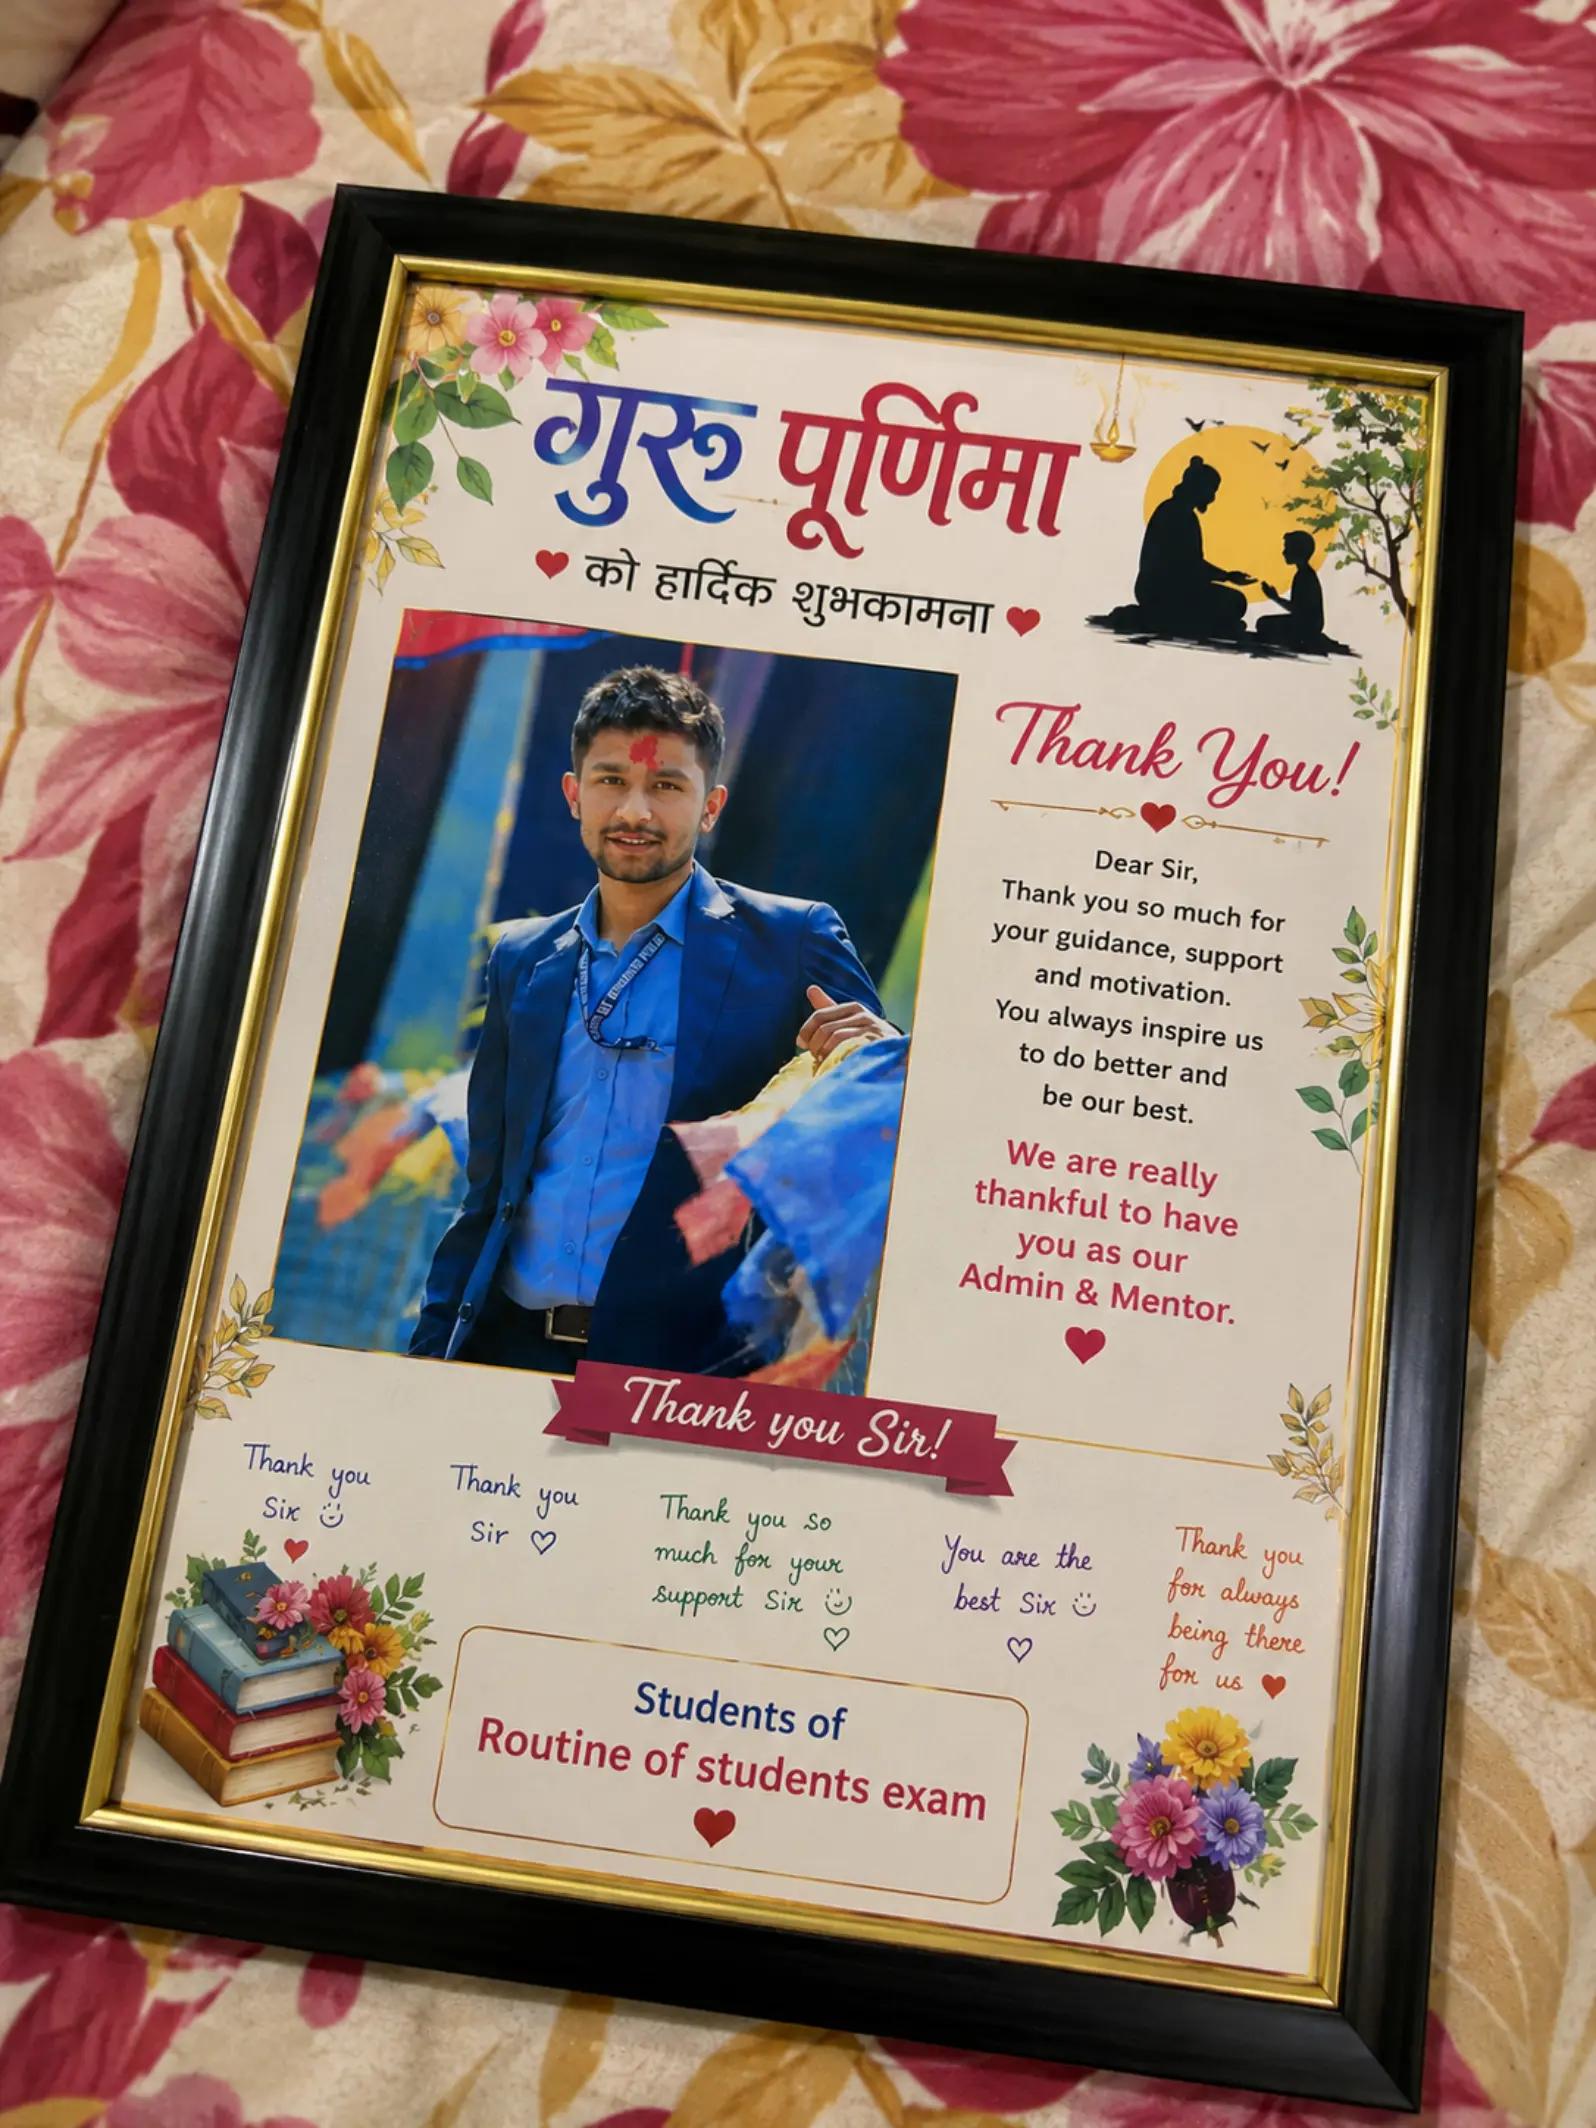 गुरु पूर्णिमा
को हार्दिक शुभकामना
Thank You!
Dear Sir,
Thank you so much for
your guidance, support
and motivation.
You always inspire us
to do better and
be our best.
We are really
thankful to have
you as our
Admin & Mentor.
Thank you Sir!
Thank you
Sir
Thank you
Sir
Thank you so
much for your
support Sir
You are the
best Sir
Thank you
for always
being there
for us
Students of
Routine of students exam